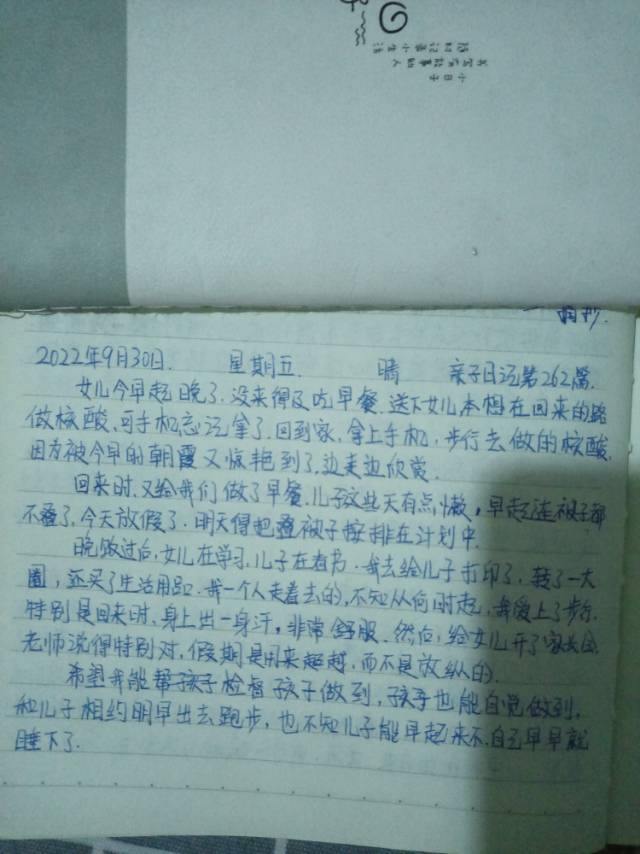 小日子
书写有故事的人
随时记录小生活
2022年9月30日. 星期五. 晴 亲子日记第262篇.
女儿今早起晚了.没来得及吃早餐.送下女儿本想在回来的路
做核酸,可手机忘记拿了.回到家,拿上手机,步行去做的核酸.
因为被今早的朝霞又惊艳到了.边走边欣赏.
回来时.又给我们做了早餐.儿子这些天有点懒,早起连被子都
不叠了.今天放假了.明天得把叠被子按排在计划中.
晚饭过后,女儿在学习.儿子在看书.我去给儿子打印了,转了一大
圈,还买了生活用品.我一个人走着去的,不知从何时起,我爱上了步行.
特别是回来时.身上出一身汗,非常舒服.然后,给女儿开了家长会.
老师说得特别对,假期是用来超越,而不是放纵的.
希望我能帮孩子检督孩子做到,孩子也能自觉做到.
和儿子相约明早出去跑步,也不知儿子能早起来不.自己早早就
睡下了.